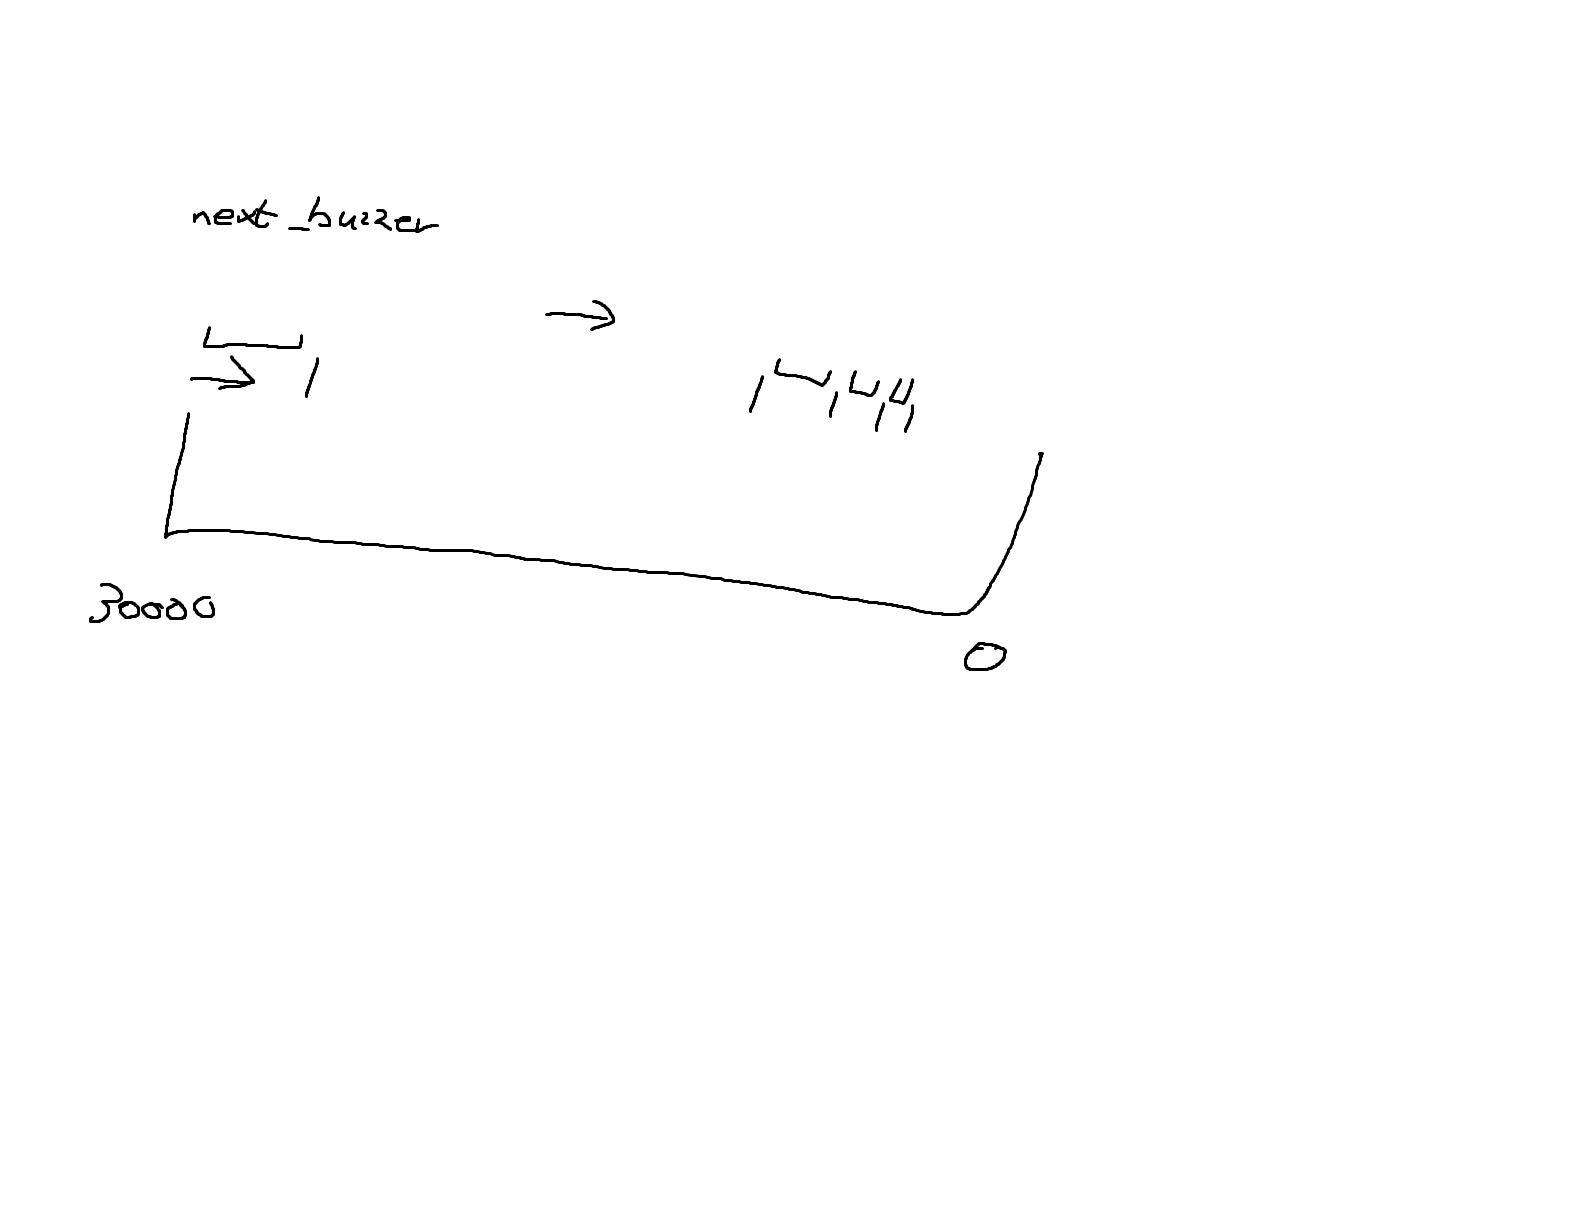 next_buzzer
30000
0